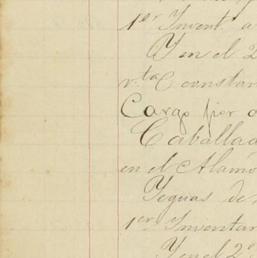 1er Invent. a
Y en el 2
rta Constan
Cargo por
Caballad
en el Alamo
Yeguas de
1er Inventar
Y en el 2o